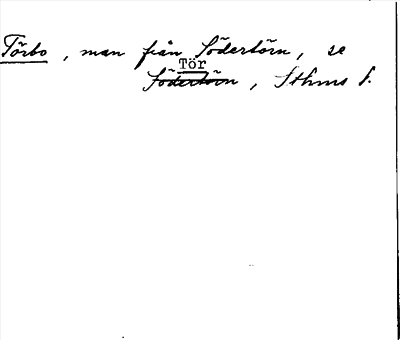 Törbo, man från Södertörn, se
Tör
Södertörn, Sthms l.